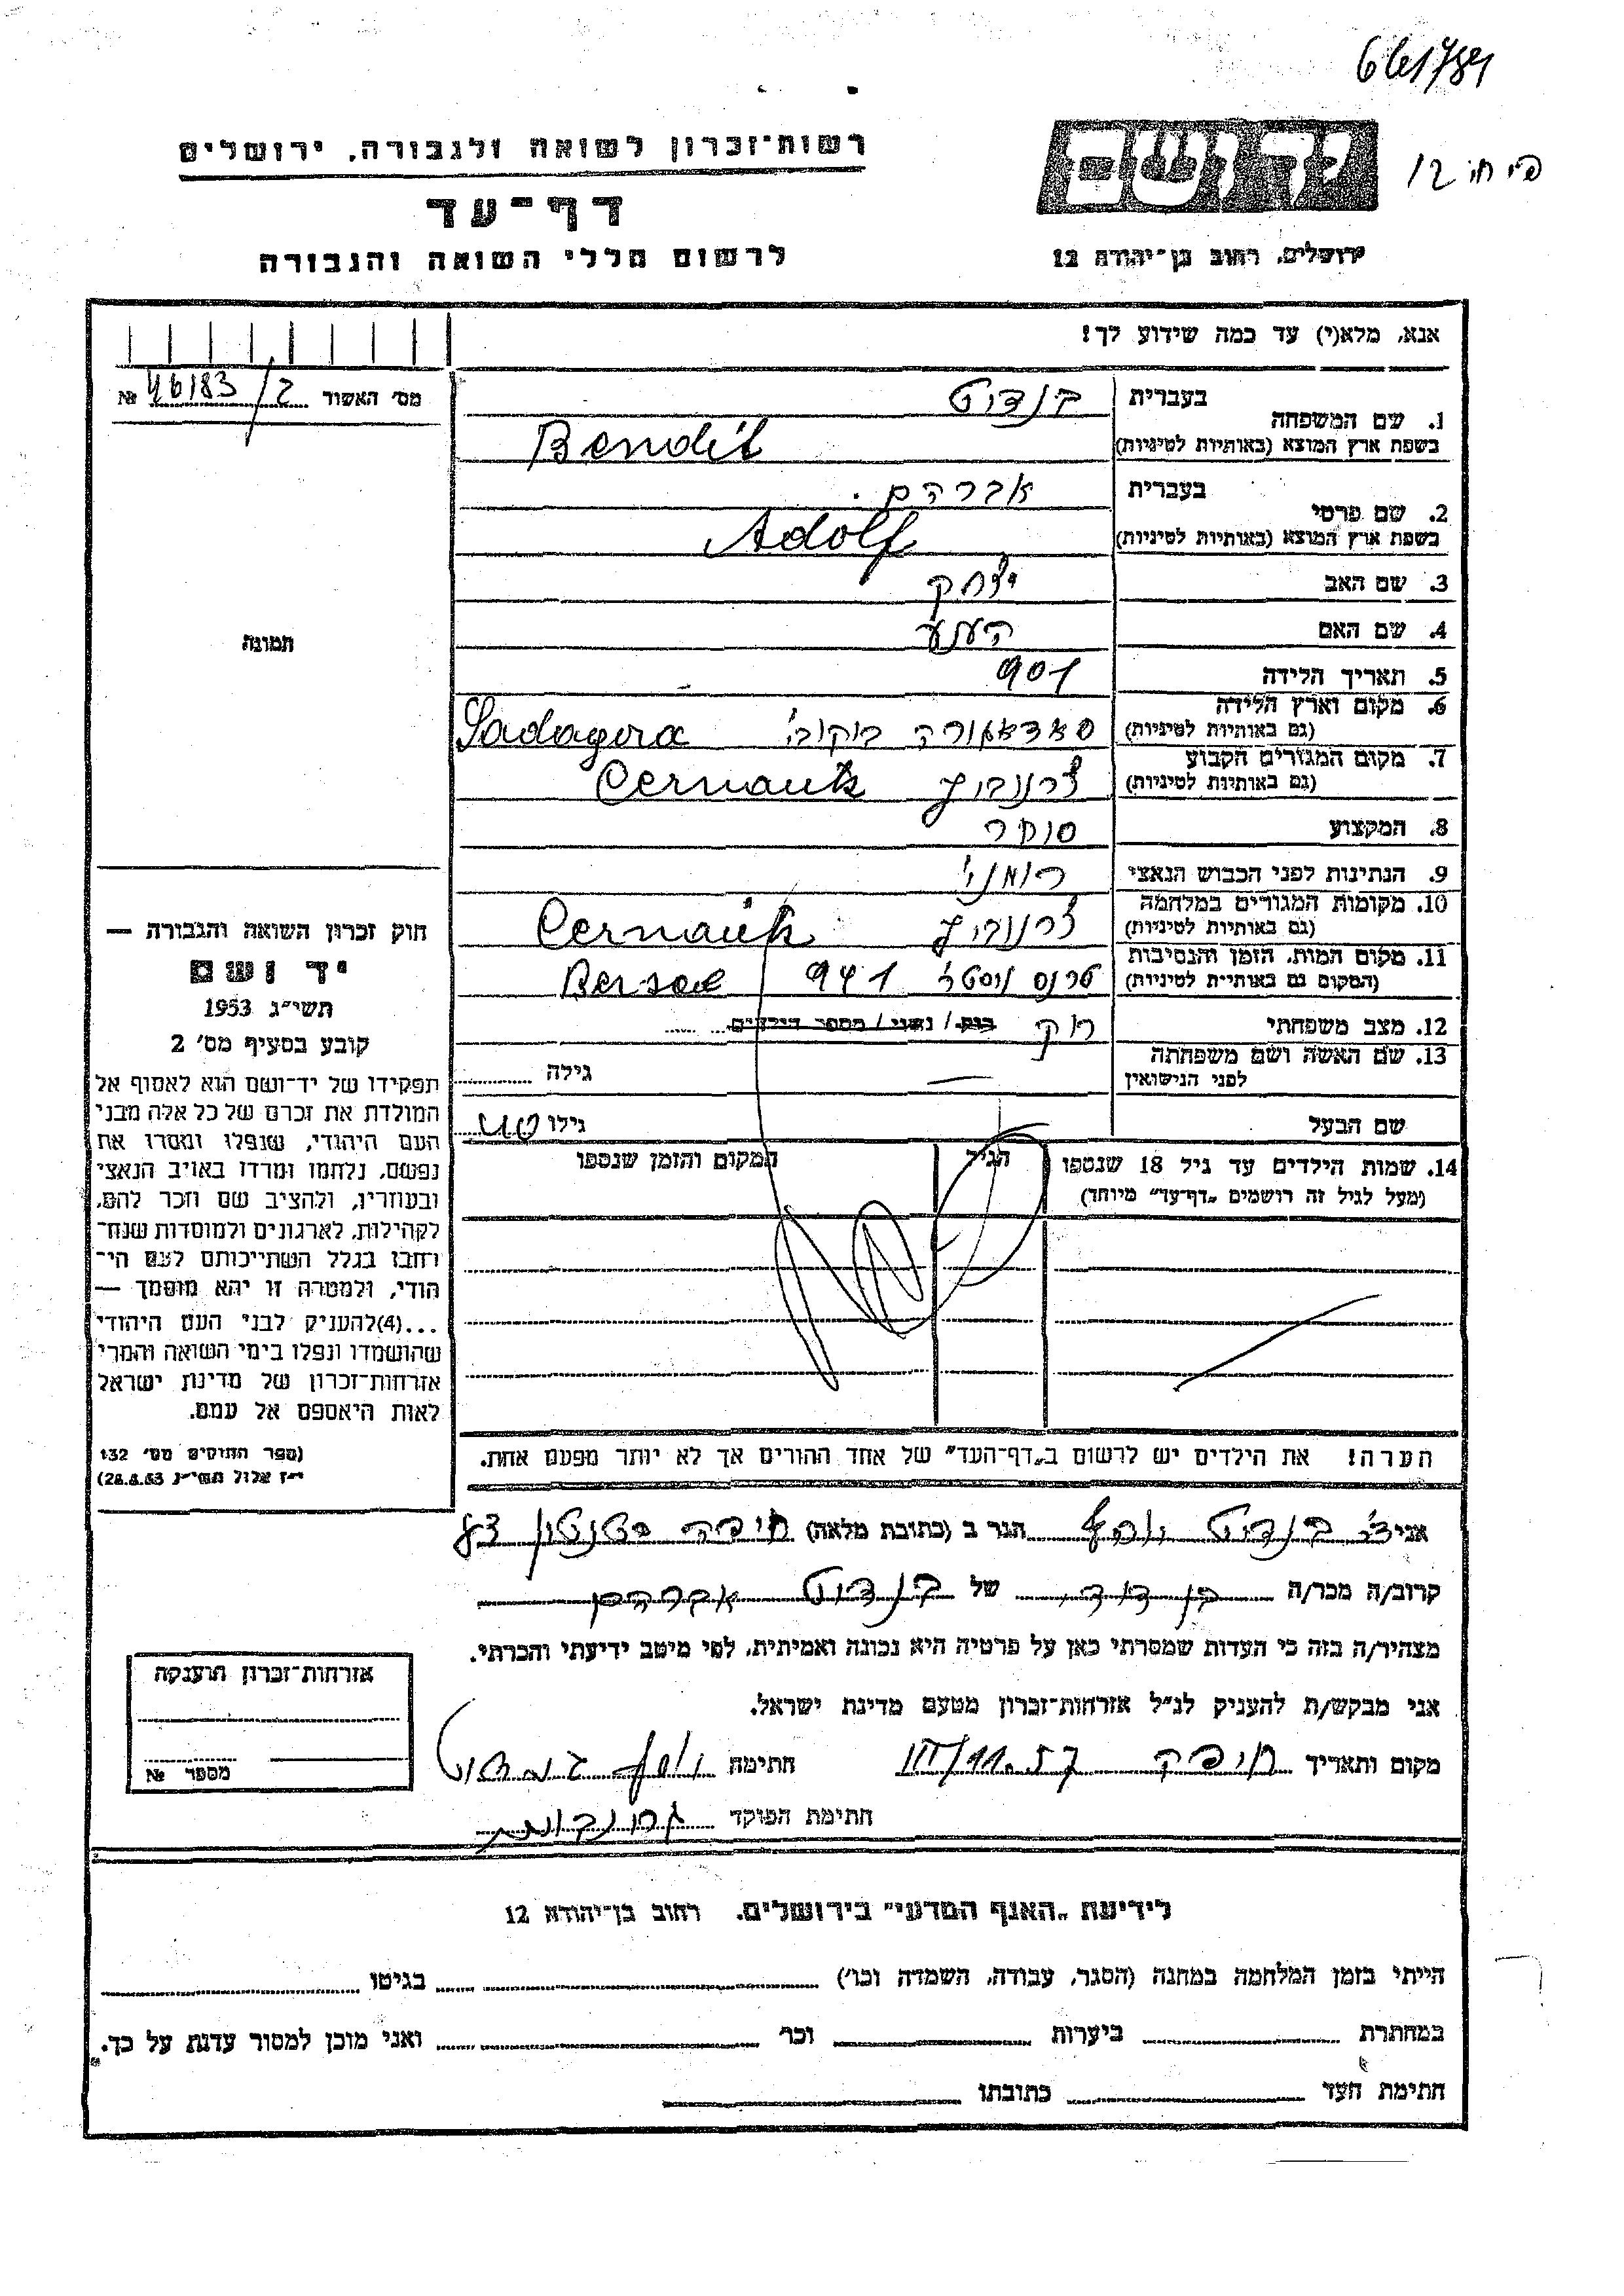 6641784
רשות־זכרון לשואה ולגבורה, ירושלים
יד ושם
12
דף־עד
לרשום חללי השואה והגבורה
ירושלים, רחוב בן־יהודה 12
אנא, מלא(י) עד כמה שידוע לך!
מס׳ האשור 46183/2 №
1. שם המשפחה בעברית בנדיט
בשפת ארץ המוצא (באותיות לטיניות) Bendit
2. שם פרטי בעברית אברהם
בשפת ארץ המוצא (באותיות לטיניות) Adolf
3. שם האב יצחק
4. שם האם
5. תאריך הלידה 901
6. מקום וארץ הלידה (גם באותיות לטיניות) סאדאגורה בוקוב׳ Sadagora
7. מקום המגורים הקבוע (גם באותיות לטיניות) צרנוביץ Cernauti
8. המקצוע סוחר
9. הנתינות לפני הכבוש הנאצי רומני
10. מקומות המגורים במלחמה (גם באותיות לטיניות) צרנוביץ Cernauti
11. מקום המות, הזמן והנסיבות (המקום גם באותיות לטיניות) טרנסניסטר 941 Bersad
12. מצב משפחתי רוק רוק / נשוי / מספר הילדים
13. שם האשה ושם משפחתה לפני הנישואין — גילה
שם הבעל גילו
14. שמות הילדים עד גיל 18 שנספו
(מעל לגיל זה רושמים „דף־עד״ מיוחד)
הגיל
המקום והזמן שנספו
הערה! את הילדים יש לרשום ב„דף־העד״ של אחד ההורים אך לא יותר מפעם אחת.
תמונה
חוק זכרון השואה והגבורה —
יד ושם
תשי״ג 1953
קובע בסעיף מס׳ 2
תפקידו של יד־ושם הוא לאסוף אל
המולדת את זכרם של כל אלה מבני
העם היהודי, שנפלו ומסרו את
נפשם, נלחמו ומרדו באויב הנאצי
ובעוזריו, ולהציב שם וזכר להם,
לקהילות, לארגונים ולמוסדות שנח־
רבו בגלל השתייכותם לעם הי־
הודי, ולמטרה זו יהא מוסמך —
...(4) להעניק לבני העם היהודי
שהושמדו ונפלו בימי השואה והמרי
אזרחות־זכרון של מדינת ישראל
לאות היאספם אל עמם.
(ספר החוקים מס׳ 132
י״ז אלול תשי״ג 28.8.53)
אני בנדיט יוסף הגר ב (כתובת מלאה) חיפה
קרוב/ה מכר/ה בן דוד של בנדיט אברהם
מצהיר/ה בזה כי העדות שמסרתי כאן על פרטיה היא נכונה ואמיתית, לפי מיטב ידיעתי והכרתי.
אני מבקש/ת להעניק לנ״ל אזרחות־זכרון מטעם מדינת ישראל.
מקום ותאריך חיפה 11.57/III חתימה יוסף
חתימת הפוקד
אזרחות־זכרון הוענקה
מספר №
לידיעת „האגף המדעי״ בירושלים, רחוב בן־יהודה 12
הייתי בזמן המלחמה במחנה (הסגר, עבודה, השמדה וכו׳) בגיטו
במחתרת ביערות וכו׳ ואני מוכן למסור עדות על כך.
חתימת העד כתובתו